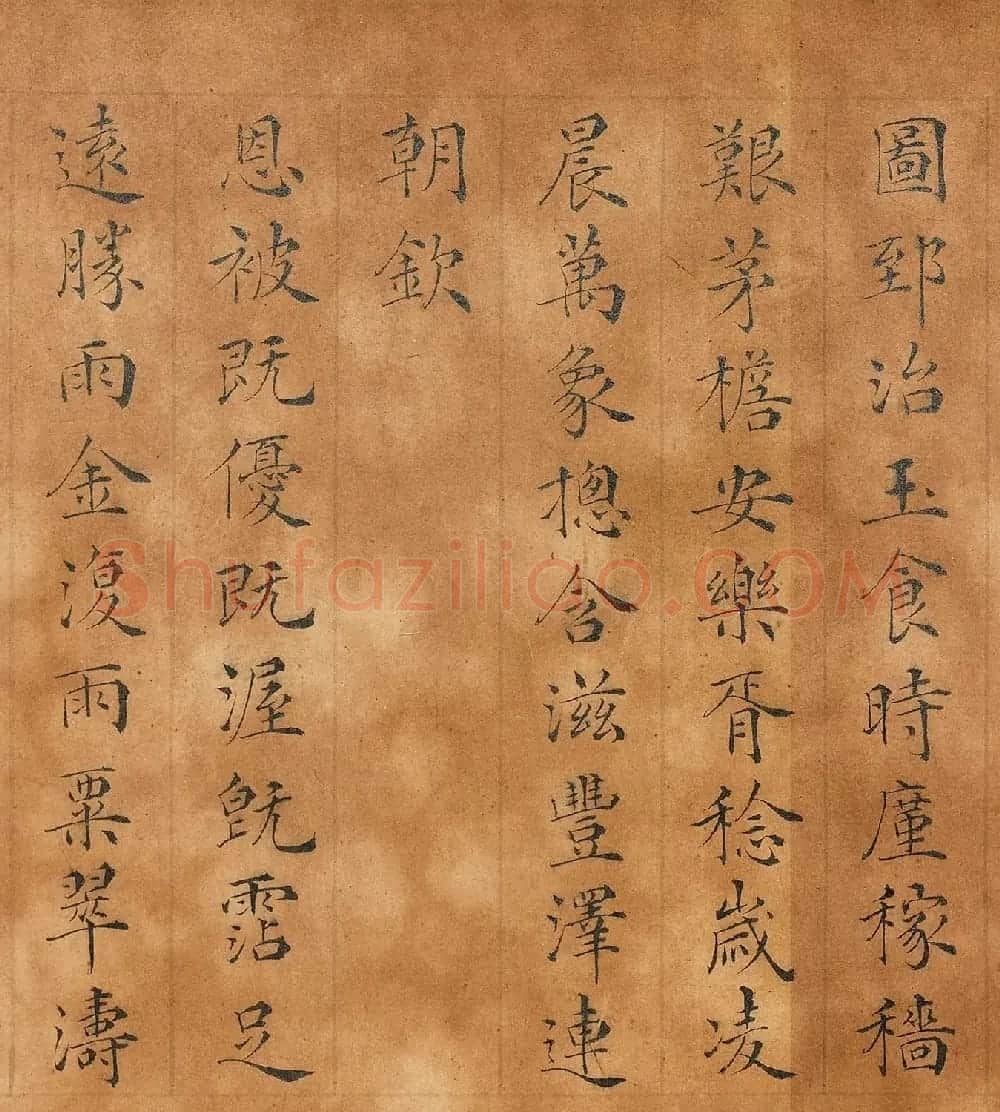 圖郅治玉食時廑稼穡
艱茅檐安樂胥稔歲凌
晨萬象摠含滋豐澤連
朝欽
恩被既優既渥既霑足
遠勝雨金復雨粟翠濤
Shufaziliao.COM